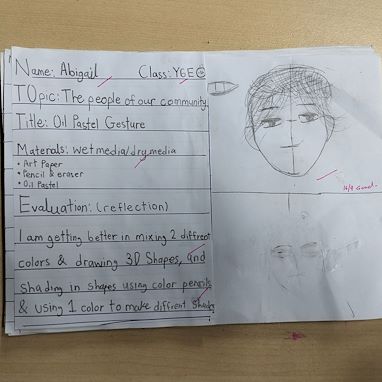 Name: Abigail Class: YGEC
TOpic: The people of our community
Title: Oil Pastel Gesture
Materals: wet media/dry media
• Art Paper
• Pencil & eraser
• Oil Pastel
Evaluation: (reflection)
I am getting better in mixing 2 diffrent
colors & drawing 3D Shapes, and
shading in shapes using color pencils
& using 1 color to make diffrent shading
Good